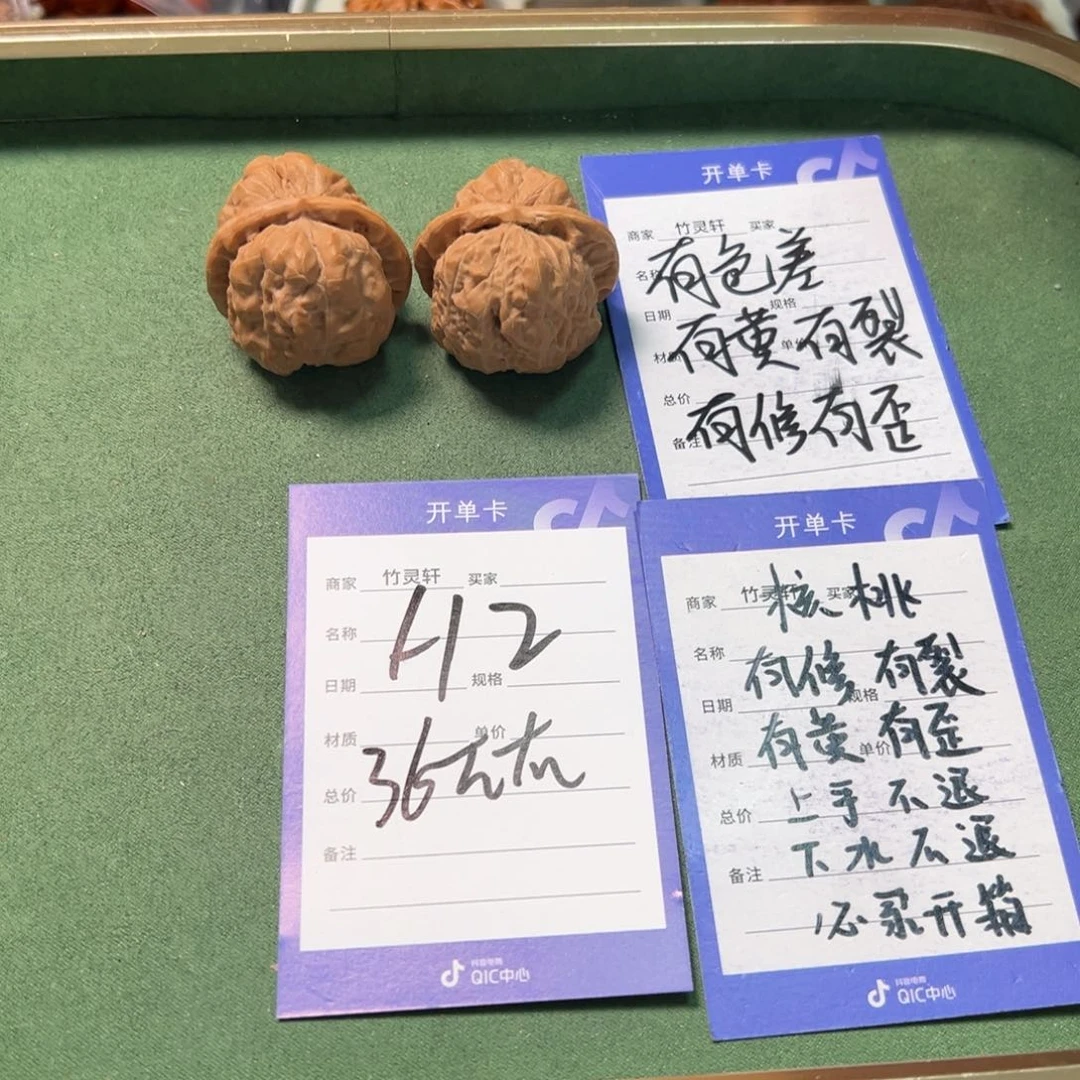 开单卡
商家 竹灵轩 买家
有色差
名称
日期 规格
有黄有裂
材质 单价
总价
有修有歪
备注
开单卡
商家 竹灵轩 买家
名称
42
日期 规格
材质 单价
36
总价
备注
抖音电商
QIC中心
开单卡
核桃
商家 竹灵轩 买家
名称
有修 有裂
日期 规格
有黄 有歪
材质 单价
上手不退
总价
下水不退
备注
必录开箱
抖音电商
QIC中心